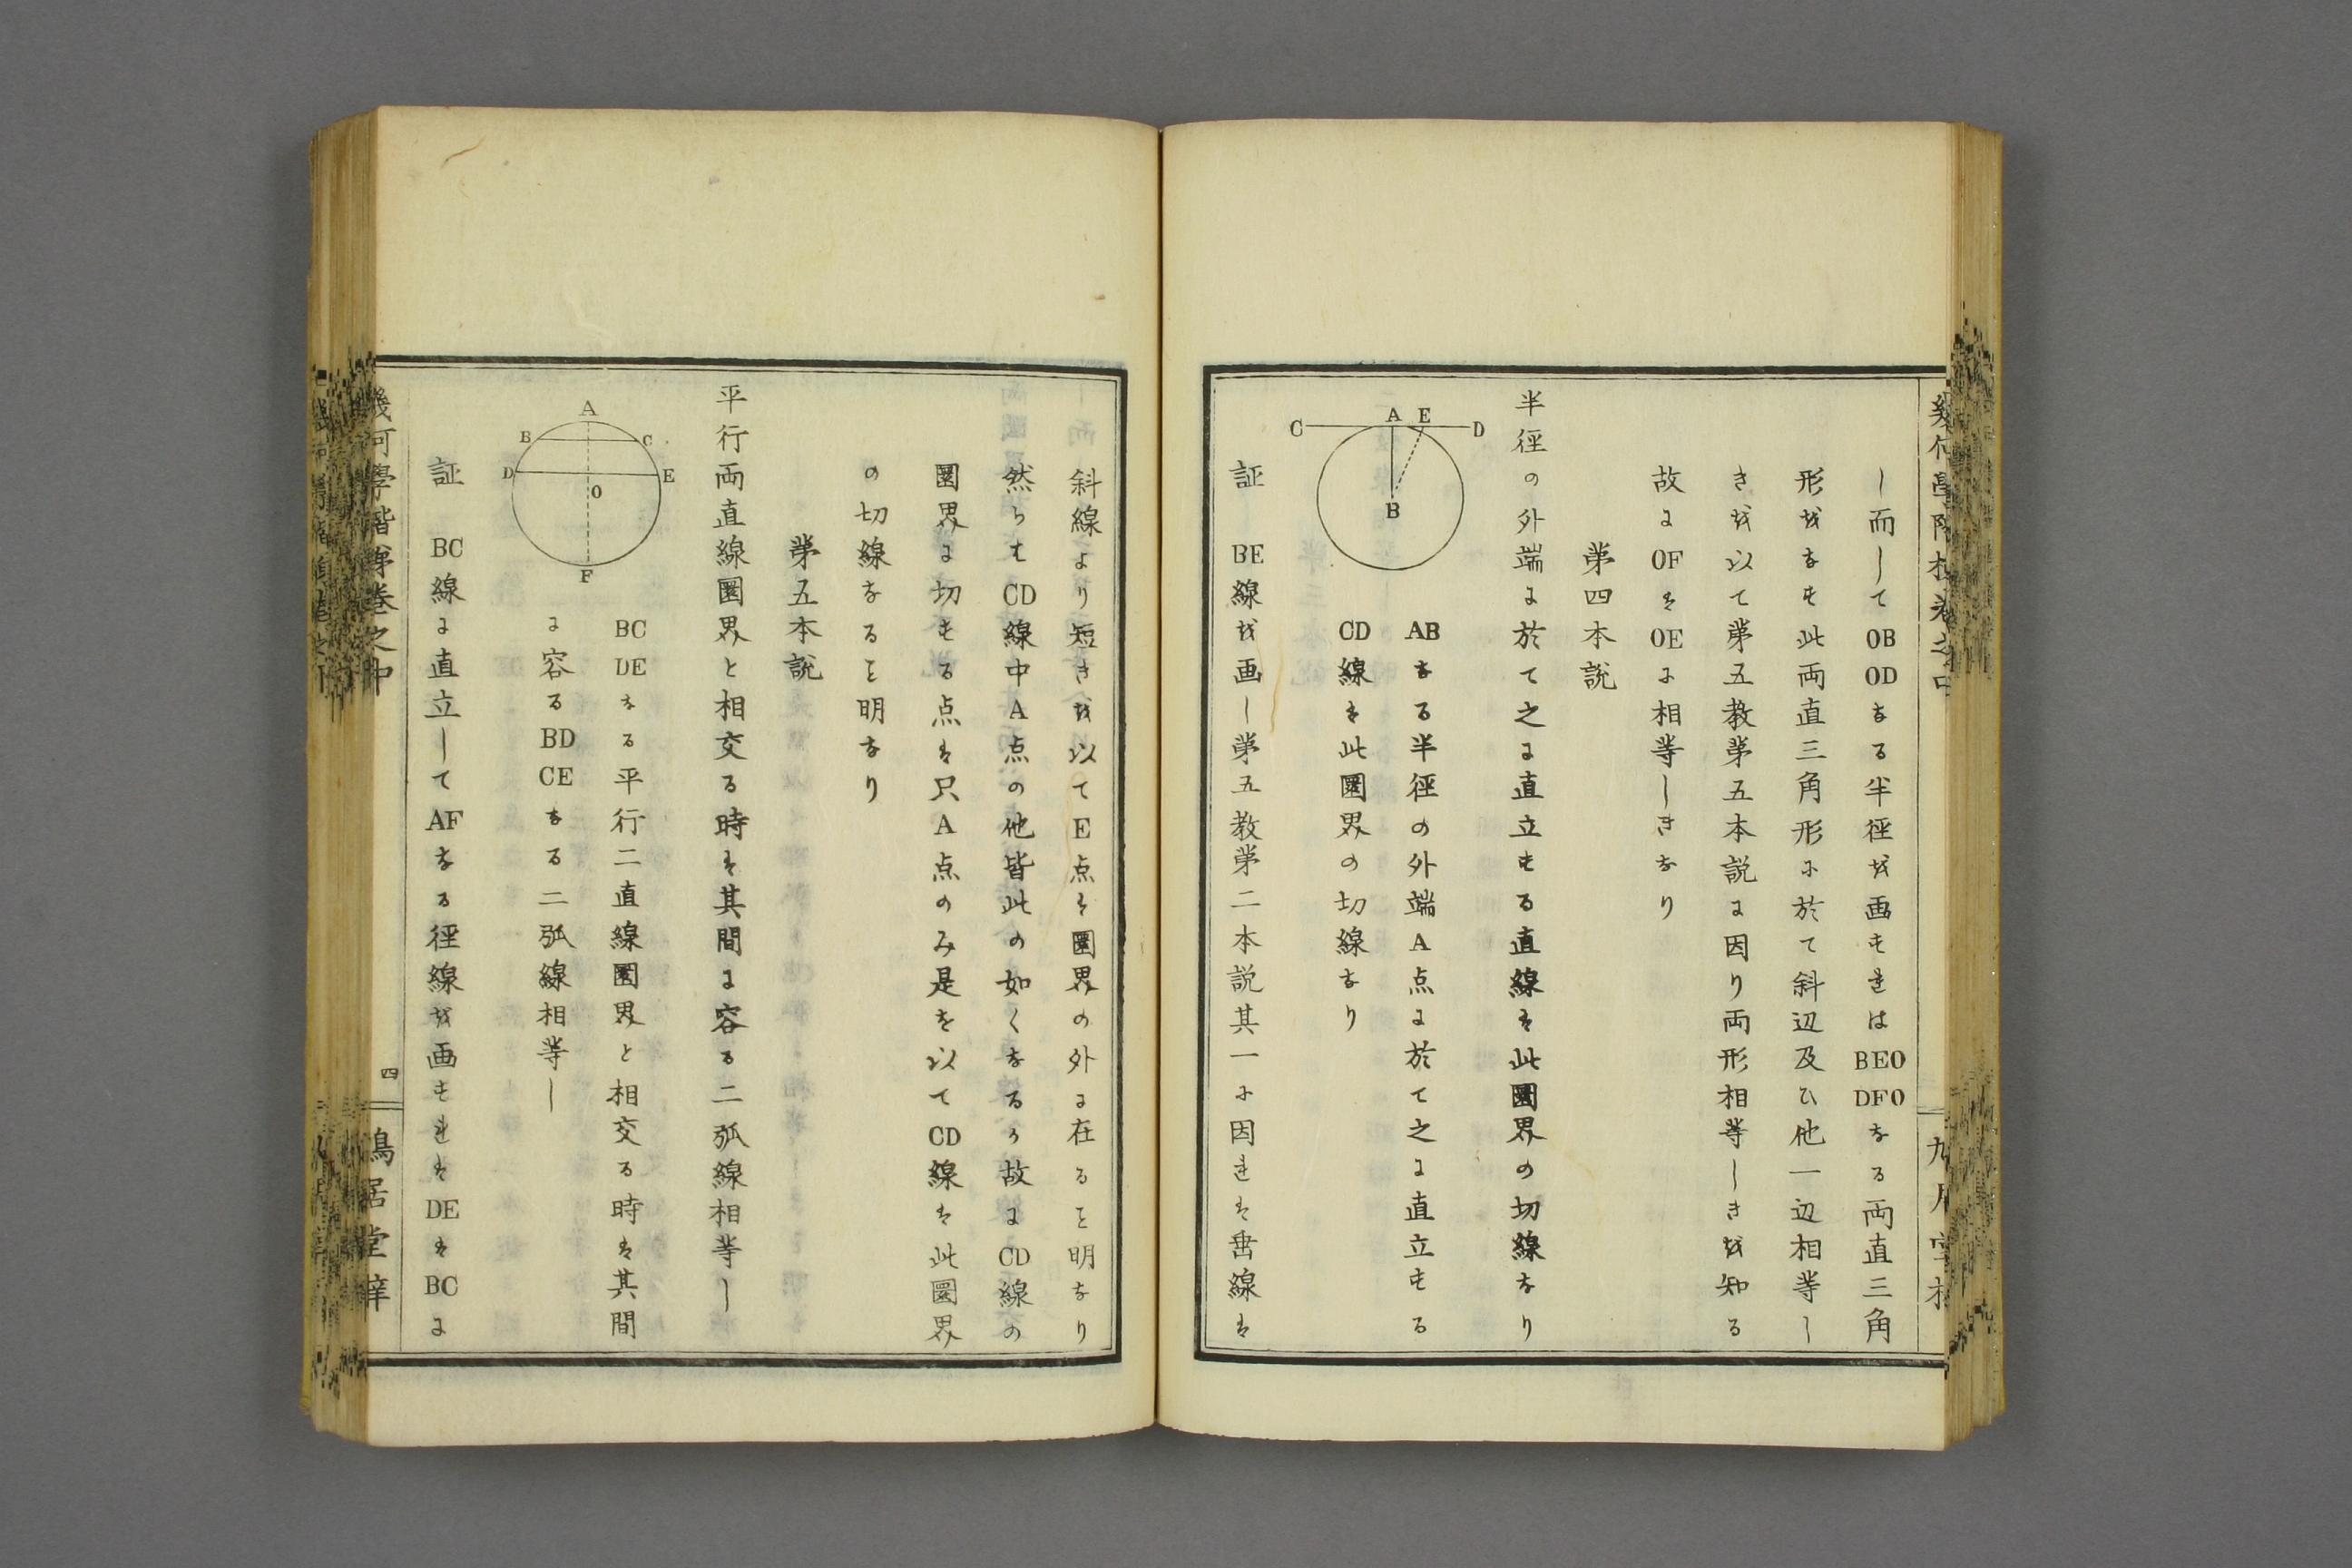 し而して OB OD なる半径を画すれは BEO DFO なる両直三角
形をなす此両直三角形に於て斜辺及ひ他一辺相等し
きを以て第五教第五本説に因り両形相等しきを知る
故に OF は OE に相等しきなり
第四本説
半径の外端に於て之に直立する直線は此圏界の切線なり
C
A
E
D
B
AB なる半径の外端 A 点に於て之に直立する
CD 線は此圏界の切線なり
証 BE 線を画し第五教第二本説其一に因れは垂線は
斜線より短きを以て E 点は圏界の外に在るを明なり
然らは CD 線中 A 点の他皆此の如くなるか故に CD 線の
圏界に切する点は只 A 点のみ是を以て CD 線は此圏界
の切線なるを明なり
第五本説
平行両直線圏界と相交る時は其間に容る二弧線相等し
A
B
C
D
E
O
F
BC DE なる平行二直線圏界と相交る時は其間
に容る BD CE なる二弧線相等し
証 BC 線に直立して AF なる径線を画すれは DE は BC に
幾何學階梯巻之中
四
鴻居堂梓